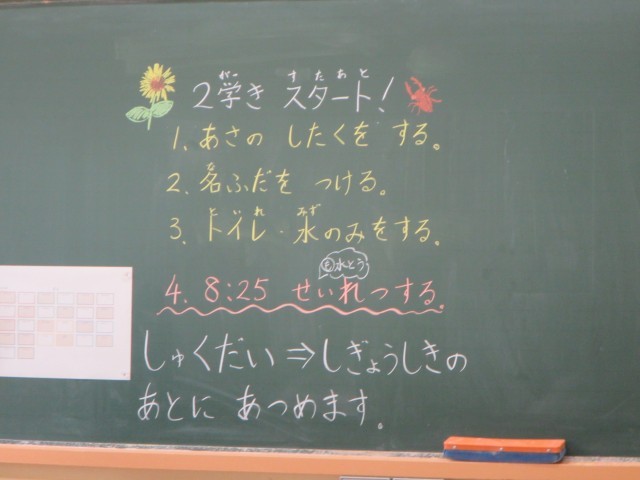 2学き スタート!
1. あさの したくを する。
2. 名ふだを つける。
3. トイレ・水のみをする。
も 水とう
4. 8:25 せいれつする。
しゅくだい⇒しぎょうしきの
あとに あつめます。